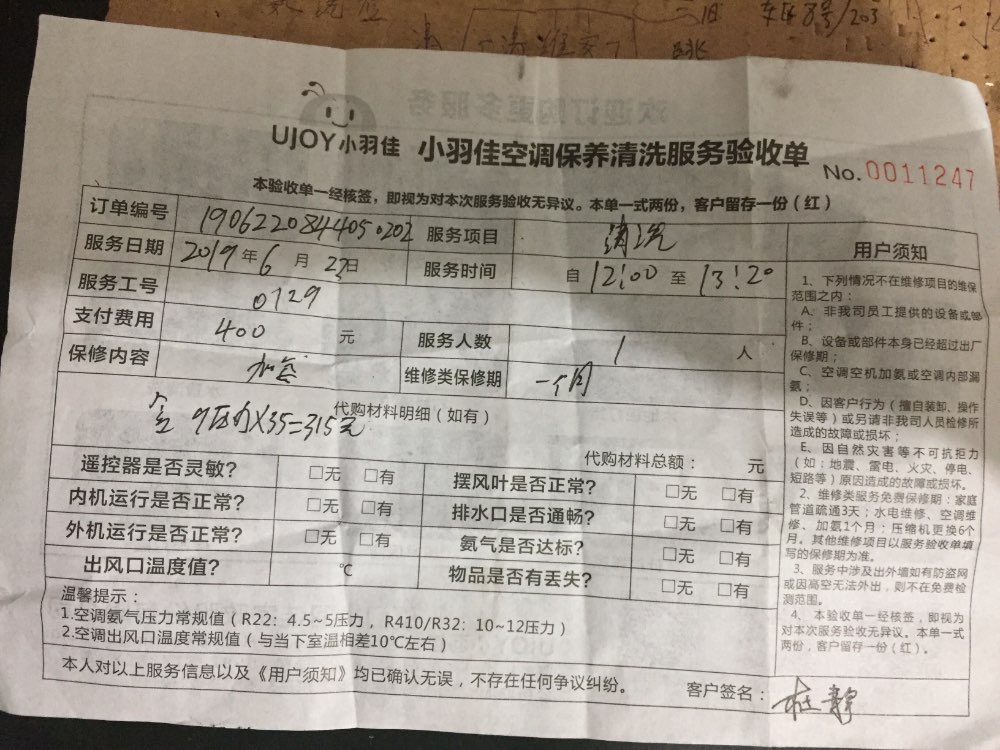 UJOY小羽佳 小羽佳空调保养清洗服务验收单
No.0011247
本验收单一经核签，即视为对本次服务验收无异议。本单一式两份，客户留存一份（红）
订单编号 1906220844050202 服务项目 清洗
服务日期 2019年6月23日 服务时间 自12:00至13:20
服务工号 0129
支付费用 400 元 服务人数 1 人
保修内容 加氨 维修类保修期 一个月
代购材料明细（如有）
9压力X35=315元
代购材料总额： 元
遥控器是否灵敏? □无 □有 摆风叶是否正常? □无 □有
内机运行是否正常? □无 □有 排水口是否通畅? □无 □有
外机运行是否正常? □无 □有 氨气是否达标? □无 □有
出风口温度值? ℃ 物品是否有丢失? □无 □有
温馨提示：
1.空调氨气压力常规值（R22：4.5~5压力，R410/R32：10~12压力）
2.空调出风口温度常规值（与当下室温相差10℃左右）
本人对以上服务信息以及《用户须知》均已确认无误，不存在任何争议纠纷。
客户签名：
用户须知
1、下列情况不在维修项目的维保
范围之内：
A、非我司员工提供的设备或部
件；
B、设备或部件本身已经超过出厂
保修期；
C、空调空机加氨或空调内部漏
氨；
D、因客户行为（擅自装卸、操作
失误等）或另请非我司人员检修所
造成的故障或损坏；
E、因自然灾害等不可抗拒力
（如：地震、雷电、火灾、停电、
短路等）原因造成的故障或损坏。
2、维修类服务免费保修期：家庭
管道疏通3天；水电维修、空调维
修、加氨1个月；压缩机更换6个
月。其他维修项目以服务验收单填
写的保修期为准。
3、服务中涉及出外墙如有防盗网
或因高空无法外出，则不在免费检
测范围。
4、本验收单一经核签，即视为
对本次服务验收无异议。本单一式
两份，客户留存一份（红）。